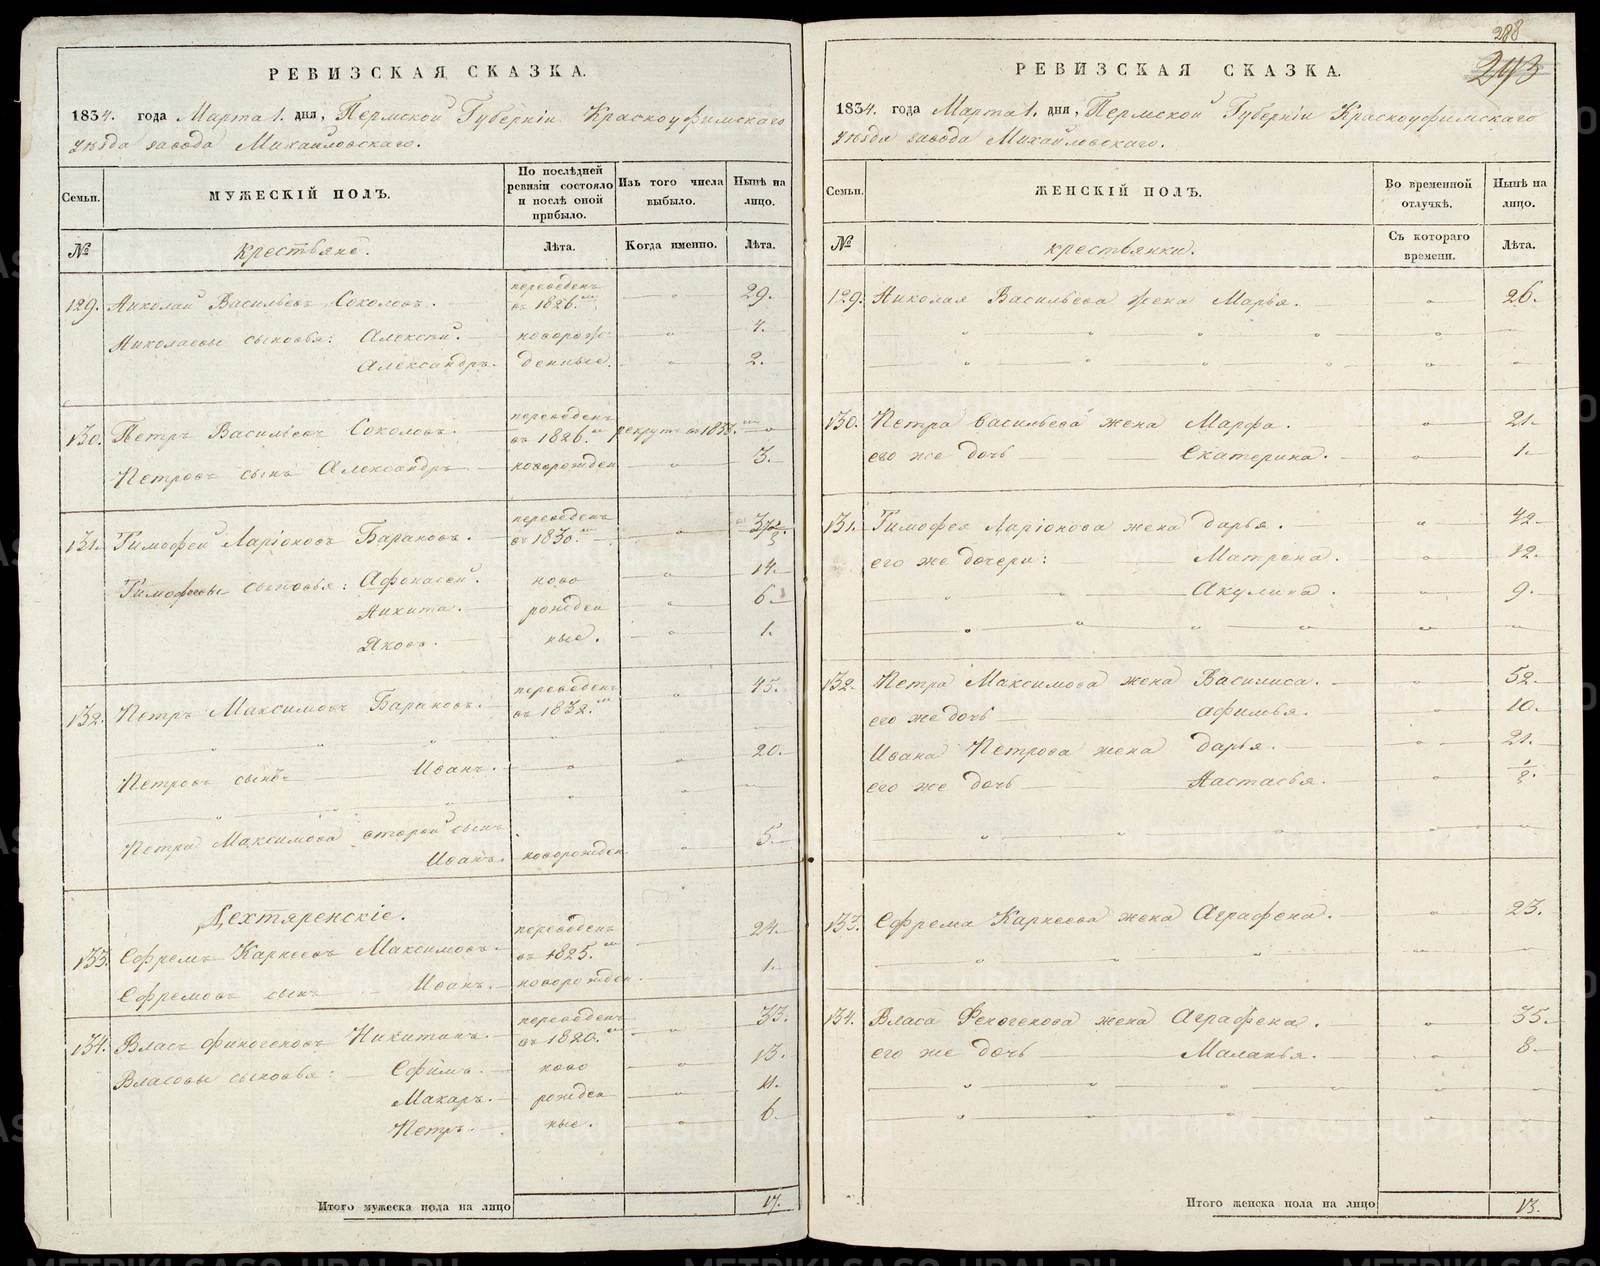 РЕВИЗСКАЯ СКАЗКА.
1834. года Марта 1. дня, Пермской Губерніи Красноуфимскаго
уѣзда завода Михайловскаго.
Семьи. МУЖЕСКІЙ ПОЛЪ. По послѣдней ревизіи состояло и послѣ оной прибыло. Изъ того числа выбыло. Нынѣ на лицо.
№ крестьяне. Лѣта. Когда именно. Лѣта.
129. Николай Васильевъ Соколовъ. переведенъ въ 1826. 29.
Николаевы сыновья: Алексѣй. новорож 4.
Александръ. денные. 2.
130. Петръ Васильевъ Соколовъ. переведенъ въ 1826. рекрут въ 1833.
Петровъ сынъ Александръ новорожден 3.
131. Тимофей Ларіоновъ Барановъ. переведенъ въ 1830.
Тимофеевы сыновья: Афонасей. ново 14.
Никита. рожден 6.
Яковъ. ные. 1.
132. Петръ Максимовъ Барановъ. переведенъ въ 1832. 45.
Петровъ сынъ Иванъ. 20.
Петра Максимова второй сынъ
Иванъ. новорожден. 5.
Дехтяренскіе.
133. Ефремъ Карнеевъ Максимовъ. переведенъ въ 1825. 24.
Ефремовъ сынъ Иванъ. новорожден. 1.
134. Власъ Финогеновъ Никитинъ. переведенъ въ 1820. 33.
Власовы сыновья: Ефимъ. ново 13.
Макаръ. рожден 11.
Петръ. ные. 6.
Итого мужеска пола на лицо 17.
288
243
РЕВИЗСКАЯ СКАЗКА.
1834. года Марта 1. дня, Пермской Губерніи Красноуфимскаго
уѣзда завода Михайловскаго.
Семьи. ЖЕНСКІЙ ПОЛЪ. Во временной отлучкѣ. Нынѣ на лицо.
№ крестьянки. Съ котораго времени. Лѣта.
129. Николая Васильева жена Марья. 26.
130. Петра Васильева жена Марфа. 21.
его же дочь Екатерина. 1.
131. Тимофея Ларіонова жена Дарья. 42.
его же дочери: Матрена. 12.
Акулина. 9.
132. Петра Максимова жена Василиса. 52.
его же дочь Афимья. 10.
Ивана Петрова жена Дарья. 21.
его же дочь Настасья.
133. Ефрема Карнеева жена Аграфена. 23.
134. Власа Феногенова жена Аграфена. 35.
его же дочь Маланья. 8.
Итого женска пола на лицо 13.
METRIKI.GASO-URAL.RU